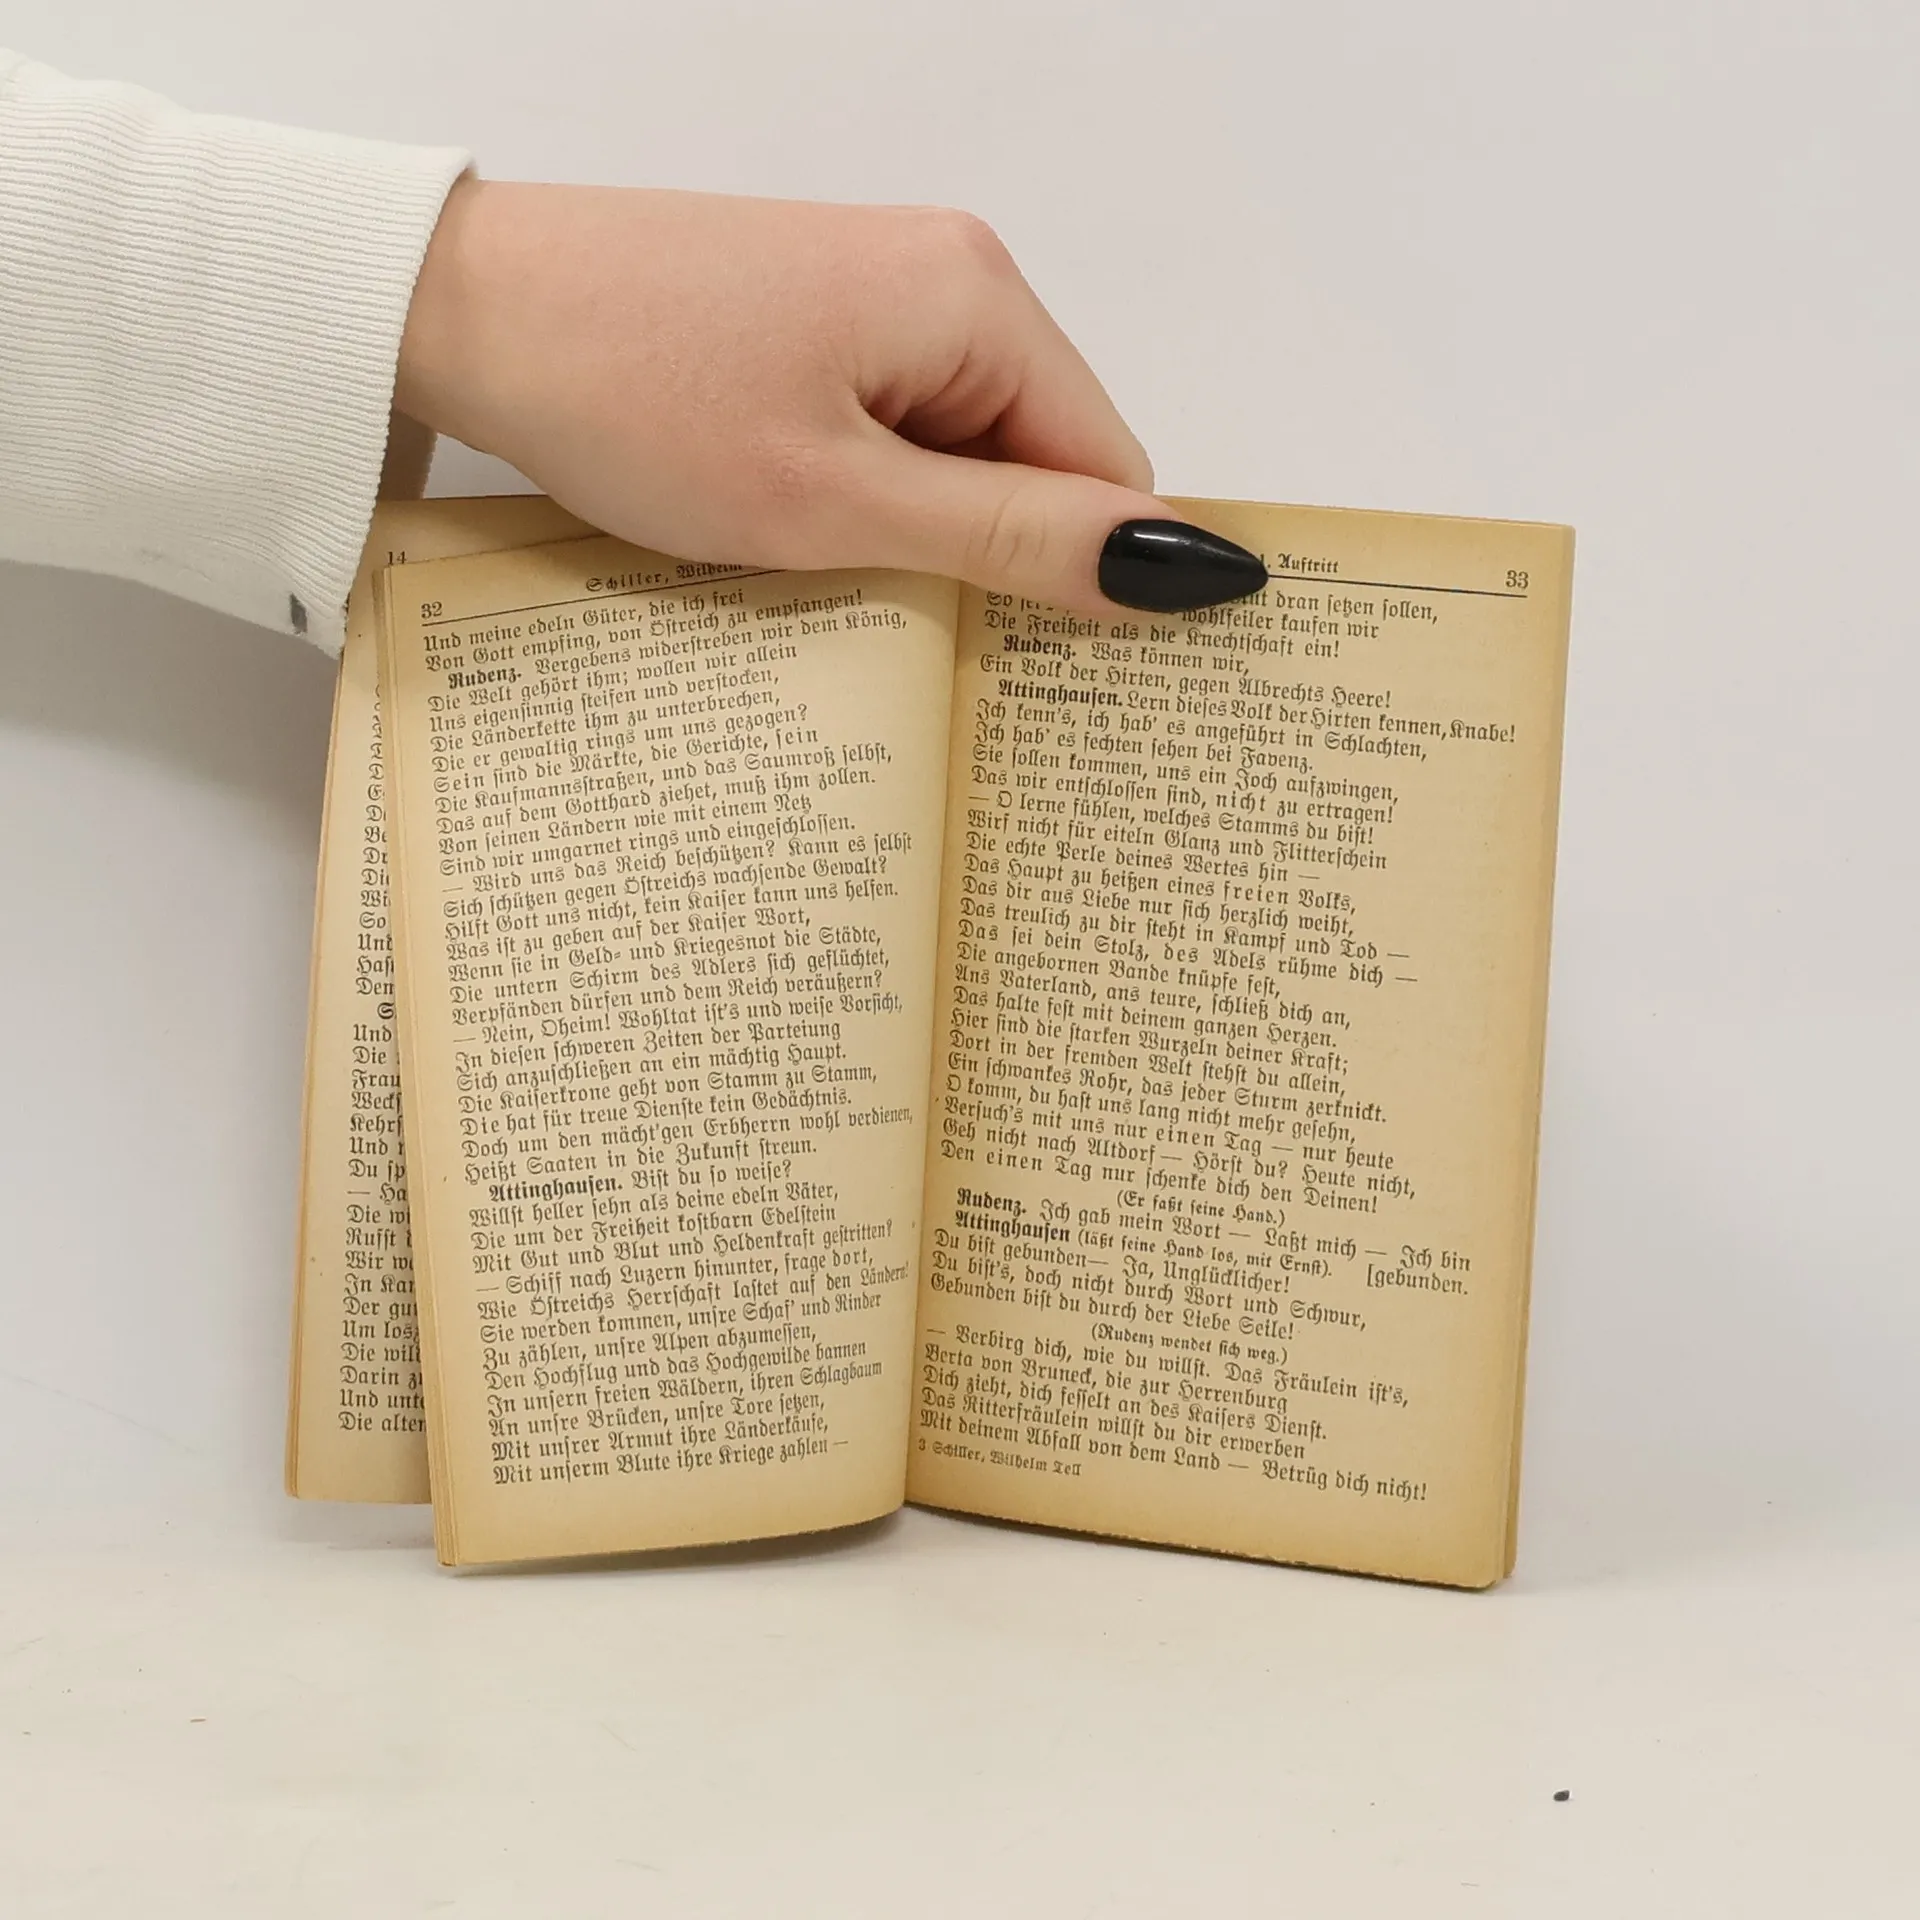 14
D
E
Da
Be
Dr
Die
Wi
So
Und
Haſt
Den
S
Und
Die
Frau
Weckſ
Kehrſ
Und
Du ſp
— Ha
Die wi
Rufſt
Wir we
In Kan
Der gu
Um los
Die wild
Darin z
Und unte
Die alten
32 Schiller, Wilhelm
Und meine edeln Güter, die ich frei
Von Gott empfing, von Öſtreich zu empfangen!
Rudenz. Vergebens widerſtreben wir dem König,
Die Welt gehört ihm; wollen wir allein
Uns eigenſinnig ſteifen und verſtocken,
Die Länderkette ihm zu unterbrechen,
Die er gewaltig rings um uns gezogen?
Sein ſind die Märkte, die Gerichte, ſein
Die Kaufmannsſtraßen, und das Saumroß ſelbſt,
Das auf dem Gotthard ziehet, muß ihm zollen.
Von ſeinen Ländern wie mit einem Netz
Sind wir umgarnet rings und eingeſchloſſen.
— Wird uns das Reich beſchützen? Kann es ſelbſt
Sich ſchützen gegen Öſtreichs wachſende Gewalt?
Hilft Gott uns nicht, kein Kaiſer kann uns helfen.
Was iſt zu geben auf der Kaiſer Wort,
Wenn ſie in Geld- und Kriegesnot die Städte,
Die untern Schirm des Adlers ſich geflüchtet,
Verpfänden dürfen und dem Reich veräußern?
— Nein, Oheim! Wohltat iſt's und weiſe Vorſicht,
In dieſen ſchweren Zeiten der Parteiung
Sich anzuſchließen an ein mächtig Haupt.
Die Kaiſerkrone geht von Stamm zu Stamm,
Die hat für treue Dienſte kein Gedächtnis.
Doch um den mächt'gen Erbherrn wohl verdienen,
Heißt Saaten in die Zukunft ſtreun.
Attinghauſen. Biſt du ſo weiſe?
Willſt heller ſehn als deine edeln Väter,
Die um der Freiheit koſtbarn Edelſtein
Mit Gut und Blut und Heldenkraft geſtritten?
— Schiff nach Luzern hinunter, frage dort,
Wie Öſtreichs Herrſchaft laſtet auf den Ländern!
Sie werden kommen, unſre Schaf' und Rinder
Zu zählen, unſre Alpen abzumeſſen,
Den Hochflug und das Hochgewilde bannen
In unſern freien Wäldern, ihren Schlagbaum
An unſre Brücken, unſre Tore ſetzen,
Mit unſrer Armut ihre Länderkäufe,
Mit unſerm Blute ihre Kriege zahlen —
1. Auftritt 33
So dran ſetzen ſollen,
wohlfeiler kaufen wir
Die Freiheit als die Knechtſchaft ein!
Rudenz. Was können wir,
Ein Volk der Hirten, gegen Albrechts Heere!
Attinghauſen. Lern dieſes Volk der Hirten kennen, Knabe!
Ich kenn's, ich hab' es angeführt in Schlachten,
Ich hab' es fechten ſehen bei Favenz.
Sie ſollen kommen, uns ein Joch aufzwingen,
Das wir entſchloſſen ſind, nicht zu ertragen!
— O lerne fühlen, welches Stamms du biſt!
Wirf nicht für eiteln Glanz und Flitterſchein
Die echte Perle deines Wertes hin —
Das Haupt zu heißen eines freien Volks,
Das dir aus Liebe nur ſich herzlich weiht,
Das treulich zu dir ſteht in Kampf und Tod —
Das ſei dein Stolz, des Adels rühme dich —
Die angebornen Bande knüpfe feſt,
Ans Vaterland, ans teure, ſchließ dich an,
Das halte feſt mit deinem ganzen Herzen.
Hier ſind die ſtarken Wurzeln deiner Kraft;
Dort in der fremden Welt ſtehſt du allein,
Ein ſchwankes Rohr, das jeder Sturm zerknickt.
O komm, du haſt uns lang nicht mehr geſehn,
Verſuch's mit uns nur einen Tag — nur heute
Geh nicht nach Altdorf — Hörſt du? Heute nicht,
Den einen Tag nur ſchenke dich den Deinen!
(Er faßt ſeine Hand.)
Rudenz. Ich gab mein Wort — Laßt mich — Ich bin
Attinghauſen (läßt ſeine Hand los, mit Ernſt). [gebunden.
Du biſt gebunden — Ja, Unglücklicher!
Du biſt's, doch nicht durch Wort und Schwur,
Gebunden biſt du durch der Liebe Seile!
(Rudenz wendet ſich weg.)
— Verbirg dich, wie du willſt. Das Fräulein iſt's,
Berta von Bruneck, die zur Herrenburg
Dich zieht, dich feſſelt an des Kaiſers Dienſt.
Das Ritterfräulein willſt du dir erwerben
Mit deinem Abfall von dem Land — Betrüg dich nicht!
3 Schiller, Wilhelm Tell